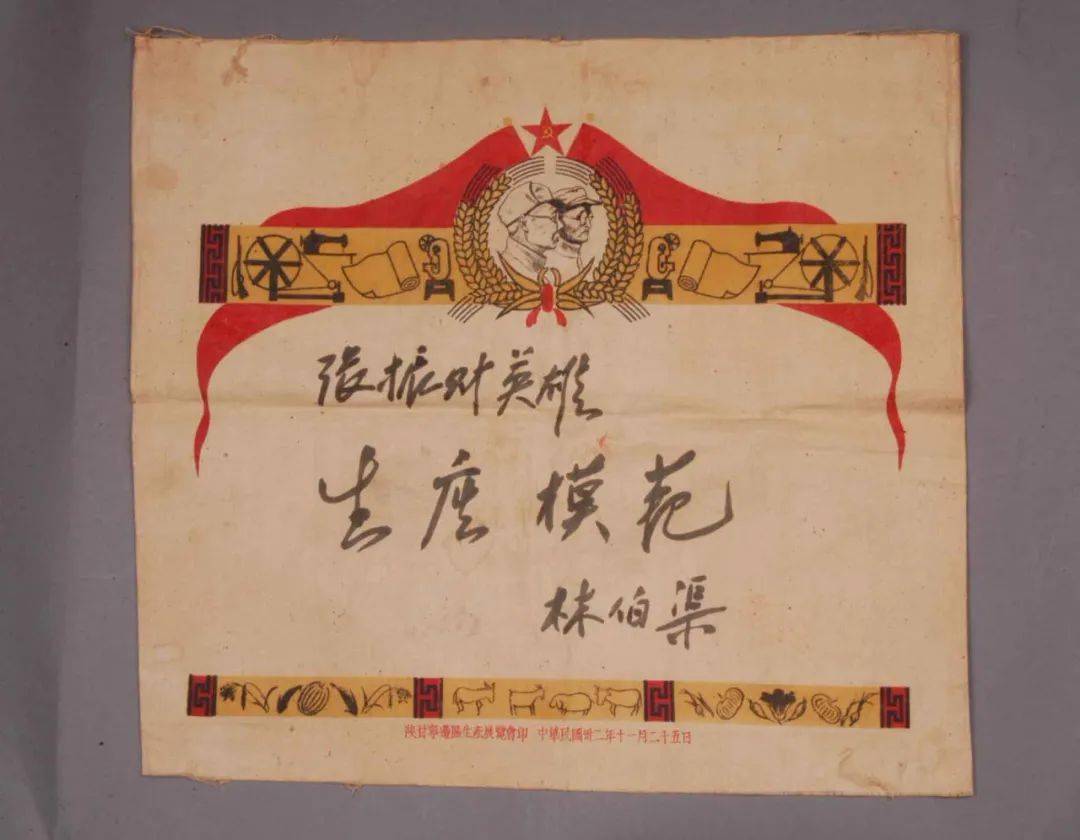 张振财英雄
生产模范
林伯渠
陝甘寧邊區生產展覽會印 中華民國卅二年十一月二十五日